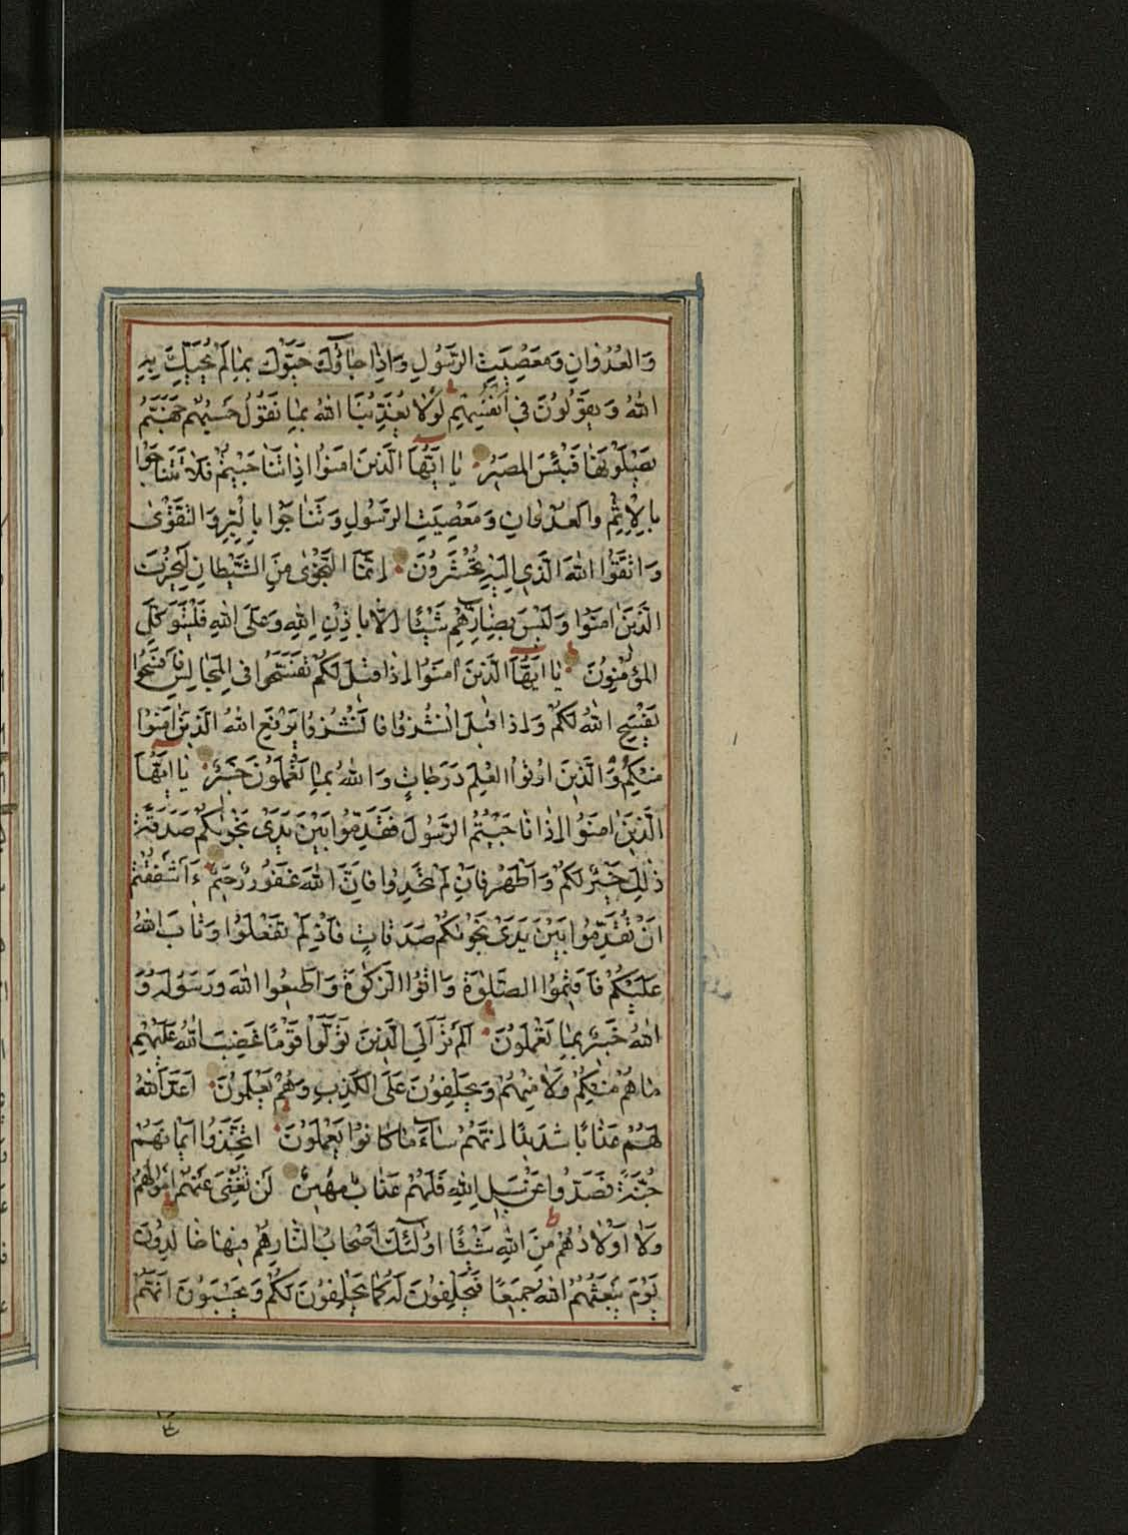 وَالعُدْوَانِ وَمَعْصِيَتِ الرَّسُولِ وَاِذَا جَاؤُكَ حَيَّوْكَ بِمَا لَمْ يُحَيِّكَ بِهِ
اللهُ وَيَقُولُونَ فِي اَنْفُسِهِمْ لَوْلَا يُعَذِّبُنَا اللهُ بِمَا نَقُولُ حَسْبُهُمْ جَهَنَّمُ
يَصْلَوْنَهَا فَبِئْسَ المَصِيرُ يَا اَيُّهَا الَّذِينَ امَنُوا اِذَا تَنَاجَيْتُمْ فَلَا تَتَنَاجَوْا
بِالْاِثْمِ وَالعُدْوَانِ وَمَعْصِيَتِ الرَّسُولِ وَتَنَاجَوْا بِالْبِرِّ وَالتَّقْوٰى
وَاتَّقُوا اللهَ الَّذِي اِلَيْهِ تُحْشَرُونَ اِنَّمَا النَّجْوٰى مِنَ الشَّيْطَانِ لِيَحْزُنَ
الَّذِينَ امَنُوا وَلَيْسَ بِضَارِّهِمْ شَيْئًا اِلَّا بِاِذْنِ اللهِ وَعَلَى اللهِ فَلْيَتَوَكَّلِ
المُؤْمِنُونَ يَا اَيُّهَا الَّذِينَ امَنُوا اِذَا قِيلَ لَكُمْ تَفَسَّحُوا فِي المَجَالِسِ فَافْسَحُوا
يَفْسَحِ اللهُ لَكُمْ وَاِذَا قِيلَ انْشُزُوا فَانْشُزُوا يَرْفَعِ اللهُ الَّذِينَ امَنُوا
مِنْكُمْ وَالَّذِينَ اُوتُوا العِلْمَ دَرَجَاتٍ وَاللهُ بِمَا تَعْمَلُونَ خَبِيرٌ يَا اَيُّهَا
الَّذِينَ امَنُوا اِذَا نَاجَيْتُمُ الرَّسُولَ فَقَدِّمُوا بَيْنَ يَدَيْ نَجْوٰيكُمْ صَدَقَةً
ذٰلِكَ خَيْرٌ لَكُمْ وَاَطْهَرُ فَاِنْ لَمْ تَجِدُوا فَاِنَّ اللهَ غَفُورٌ رَحِيمٌ ءَاَشْفَقْتُمْ
اَنْ تُقَدِّمُوا بَيْنَ يَدَيْ نَجْوٰيكُمْ صَدَقَاتٍ فَاِذْ لَمْ تَفْعَلُوا وَتَابَ اللهُ
عَلَيْكُمْ فَاَقِيمُوا الصَّلٰوةَ وَاتُوا الزَّكٰوةَ وَاَطِيعُوا اللهَ وَرَسُولَهُ وَ
اللهُ خَبِيرٌ بِمَا تَعْمَلُونَ اَلَمْ تَرَ اِلَى الَّذِينَ تَوَلَّوْا قَوْمًا غَضِبَ اللهُ عَلَيْهِمْ
مَا هُمْ مِنْكُمْ وَلَا مِنْهُمْ وَيَحْلِفُونَ عَلَى الكَذِبِ وَهُمْ يَعْلَمُونَ اَعَدَّ اللهُ
لَهُمْ عَذَابًا شَدِيدًا اِنَّهُمْ سَاءَ مَا كَانُوا يَعْمَلُونَ اتَّخَذُوا اَيْمَانَهُمْ
جُنَّةً فَصَدُّوا عَنْ سَبِيلِ اللهِ فَلَهُمْ عَذَابٌ مُهِينٌ لَنْ تُغْنِيَ عَنْهُمْ اَمْوَالُهُمْ
وَلَا اَوْلَادُهُمْ مِنَ اللهِ شَيْئًا اُولٰئِكَ اَصْحَابُ النَّارِ هُمْ فِيهَا خَالِدُونَ
يَوْمَ يَبْعَثُهُمُ اللهُ جَمِيعًا فَيَحْلِفُونَ لَهُ كَمَا يَحْلِفُونَ لَكُمْ وَيَحْسَبُونَ اَنَّهُمْ